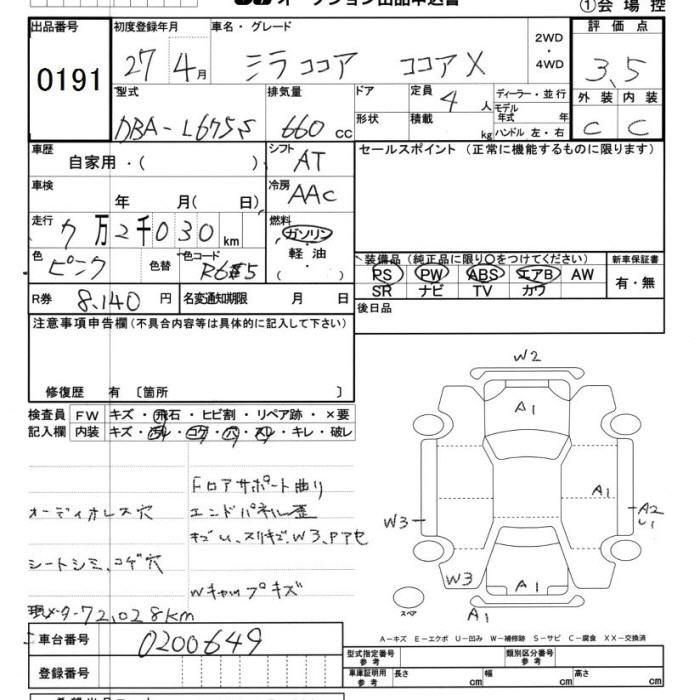 オークション出品申込書
①会場控
出品番号 初度登録年月 車名・グレード 評価点
0191 27 4月 ミラココア ココアX 2WD ・4WD 3,5
型式 排気量 ドア 定員 4人 ディーラー・並行 外装 内装
DBA-L675S 660cc 形状 積載 kg モデル年式 年 ハンドル 左・右 C C
車歴 自家用・( ) シフト AT セールスポイント (正常に機能するものに限ります)
車検 年 月( 日) 冷房 AAC
走行 7万2千030km 燃料 ガソリン 軽油 ( )
色 ピンク 色替 色コード R6#5
装備品(純正品に限り○をつけてください) 新車保証書
PS PW ABS エアB AW 有・無
SR ナビ TV カワ
R券 8,140円 名変通知期限 月 日 後日品
注意事項申告欄(不具合内容等は具体的に記入して下さい)
修復歴 有 〔箇所 〕
検査員 FW キズ・飛石・ヒビ割・リペア跡・×要
記入欄 内装 キズ・汚レ・コゲ・穴・スレ・キレ・破レ
W2
A1
FロアサポートL曲り
オーディオレス穴 エンドパネル歪
キズU、スリキズ、W3、Pアセ
シートシミ、コゲ穴
Wキャップキズ
A1
W3
A2
U1
W3
A1
スペア
A1
現メーター72,028km
A-キズ E-エクボ U-凹み W-補修跡 S-サビ C-腐食 XX-交換済
車台番号 0200649 型式指定番号 参考 類別区分番号 参考
登録番号 車庫証明用 参考 長さ cm 幅 cm 高さ cm